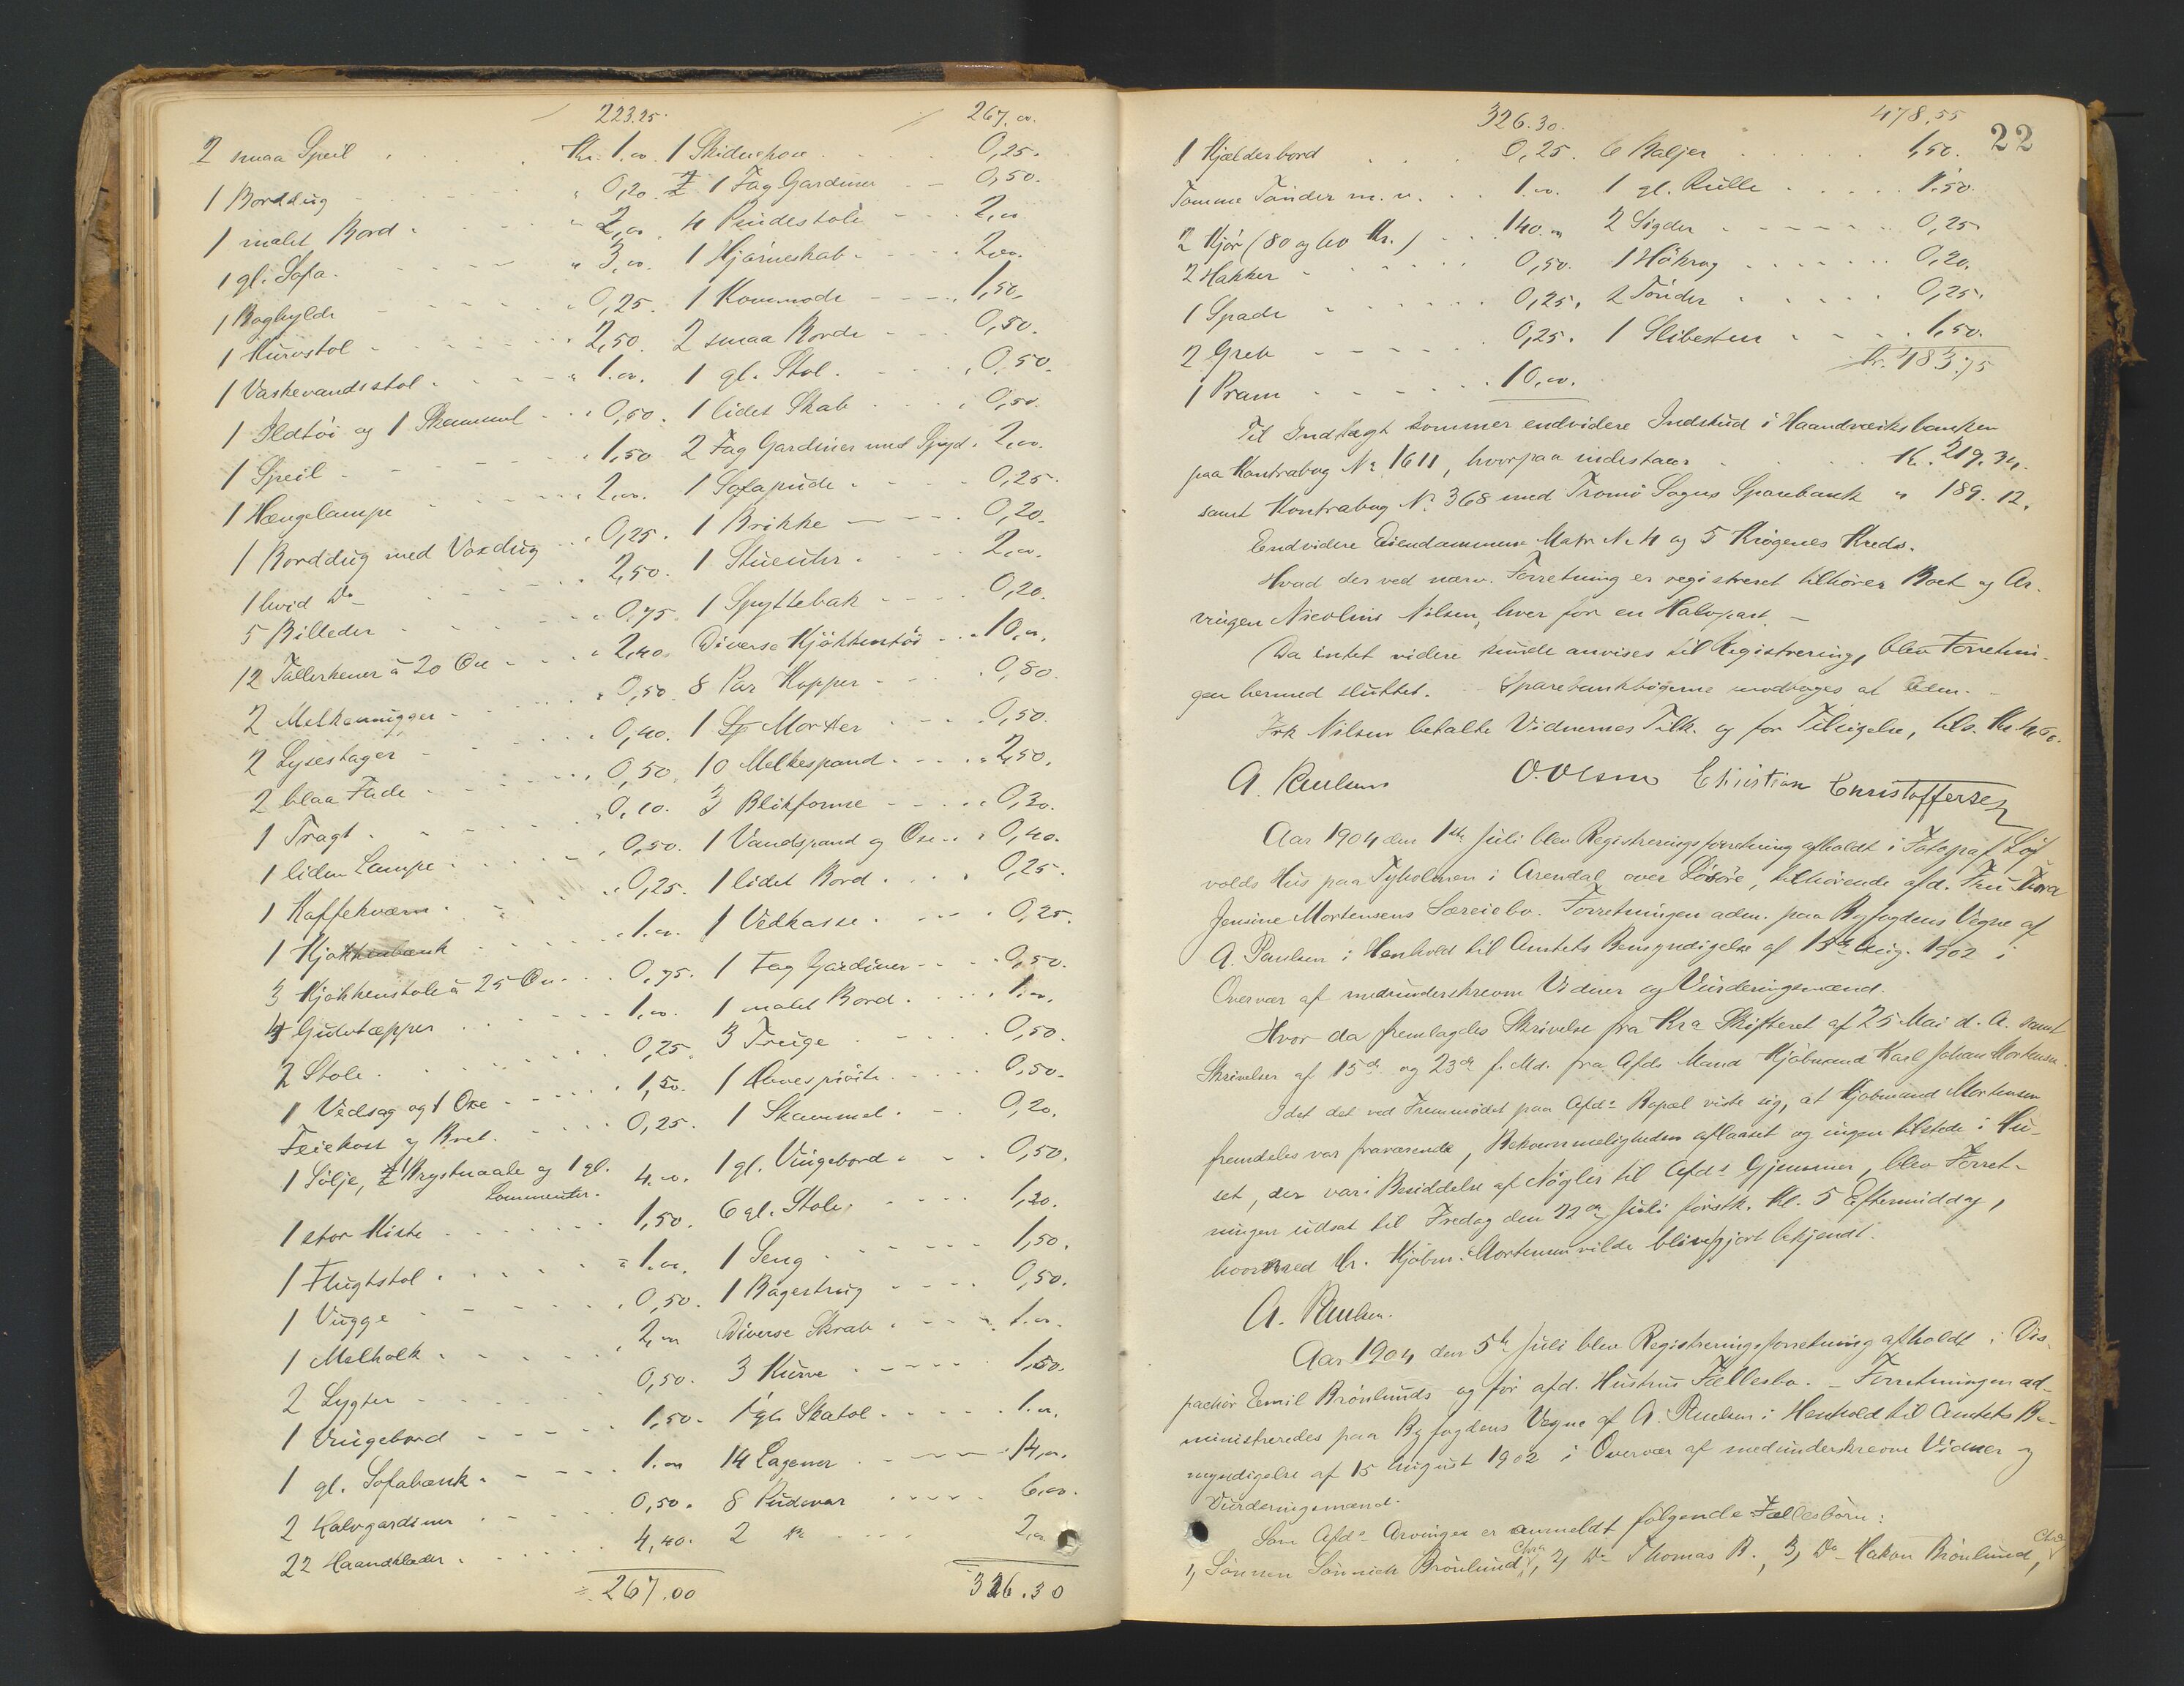 223.25.
2 smaa Speil . . . Kr. 1.00.
1 Borddug - - - " 0,20.
1 malet Bord . - - " 2,00.
1 gl. Sofa. - - - " 3,00.
1 Boghylde - - - " 0,25.
1 Kurvstol - - - " 2,50.
1 Vaskevandsstol . - - " 1.00.
1 Ildtöi og 1 Skammel - " 0,50.
1 Speil - - - " 1,50
1 Hængelampe - - - " 2,00.
1 Borddug med Voxdug " 0,25.
1 hvid Do - - - 2,50.
5 Billeder - - - " 0,75.
12 Tallerkener à 20 Öre - - " 2,40.
2 Melkemugger - - - " 0,50.
2 Lysestager - - - " 0,40.
2 blaa Fade - - - " 0,50.
1 Tragt . - - - " 0,10.
1 liden Lampe - - - " 0,50.
1 Kaffekværn . - - " 0,25.
1 Kjökkenbænk - - - " 1.00.
3 Kjökkenstole à 25 Öre - - 0,75.
4 Gulvtæpper - - - 1,00.
2 Stole . - - - 0,25.
1 Vedsag og 1 Öxe - - - " 1,50.
Feiekost og Bret. - - - 0,25.
1 Sölje, 1 Brystnaale og 1 gl.
Lommeuhr. 4.00.
1 stor Kiste - - - 1,50.
1 Flugtstol . - - - " 1.00.
1 Vugge - - - " 0,50.
1 Melholk . - - - " 2,00
2 Lygter - - - 0,50.
1 Vingebord - - - 1,50.
1 gl. Sofabænk . - - - 1.00
2 Halvgardiner - - - 0,50.
22 Haandklæder . - - - 4,40.
= 267.00
267.00.
1 Skidenpose - - - 0,25.
1 Fag Gardiner - - 0,50.
4 Pindestole - - - 2,00
1 Hjörneskab - - - 2,00.
1 Kommode - - - 1,50.
2 smaa Borde - - - 0,50.
1 gl. Stol . - - - 0,50.
1 lidet Skab . - - 0,50.
2 Fag Gardiner med Spyd. 2,00.
1 Sofapude . - - - 0,25.
1 Brikke - - - 0,20.
1 Stueuhr . - - - 2,00.
1 Spyttebak - - - 0,20.
Diverse Kjökkentöi - - " 10,00.
8 Par Kopper - - - 0,80.
1 Morter - - - 0,50.
10 Melkespand . - - " 2,50.
3 Blikforme - - - 0,30.
1 Vandspand og Öse . . " 0,40.
1 lidet Bord . . . 0,25.
1 Vedkasse . - - - 0,25.
1 Fag Gardiner - - - 0,50.
1 malet Bord . - - - 1.00.
3 Trüge - - - 0,50.
1 - - - 0,50.
1 Skammel . - - 0,20.
1 gl. Vingebord . - - 0,50.
6 gl. Stole . - - - 1,20.
1 Seng - - - 1,50.
1 Bagestrug - - - 0,50.
Diverse Skrab . - - - 1.00.
3 Kurve - - - 1,50.
1 gl. Skatol . - - - 1.00.
14 Lagener . - - - 14,00.
8 Pudevar - - - 6,00.
2 Do - - - 2,00
326.30
22
326.30.
1 Kjælderbord . . . 0,25.
Tomme Tönder m. v. . . 1.00.
2 Kjör (80 og 60 Kr.) . . 140.00
2 Hakker - - - 0,50.
1 Spade - - - 0,25.
2 Greb - - - 0,25.
1 Pram - - - 10,00.
478,55
6 Baljer . . . 1,50.
1 gl. Rulle . . . 1.50.
2 Sigder - - - 0,25
1 Hökrog - - - 0,20.
2 Tönder . . . 0,25.
1 Slibesten - - - 1,50.
Kr. 483.75
Til Indtægt kommer endvidere Indskud i Haandværksbanken
paa Kontrabog No 1611, hvorpaa indestaar . . . Kr. 219.34.
samt Kontrabog No 368 med Tromö Sogns Sparebank " 189.12.
Endvidere Eiendommene Matr. No 4 og 5 Krögenes Kreds.
Hvad der ved nærv. Forretning er registreret tilhörer Boet og Ar-
vingen Nicoline Nilsen, hver for en Halvpart. –
Da intet videre kunde anvises til Registrering, blev Forretnin-
gen hermed sluttet. Sparebankbögerne modtoges af Adm. –
Frk Nilsen betalte Vidnernes Tilk. og for Tilsigelse, tils. Kr. 4,60.
A. Paulsen O. Olsen Christian Christoffersen
Aar 1904 den 1ste Juli blev Registreringsforretning afholdt i Fotograf Löv-
volds Hus paa Tyholmen i Arendal over Lösöre, tilhörende afd. Fru Thora
Jensine Mortensens Særeiebo. Forretningen adm. paa Byfogdens Vegne af
A. Paulsen i Henhold til Amtets Bemyndigelse af 15de Aug. 1902 i
Overvær af medunderskrevne Vidner og Vurderingsmænd.
Hvor da fremlagdes Skrivelse fra Kra Skifteret af 25 Mai d. A. samt
Skrivelser af 15de og 23de f. Md. fra Afds Mand Kjöbmand Karl Johan Mortensen.
Idet det ved Fremmödet paa Afds Bopæl viste sig, at Kjöbmand Mortensen
fremdeles var fraværende, Bekvemmeligheden aflaaset og ingen tilstede i Hu-
set, der var i Besiddelse af Nögler til Afds Gjemmer, blev Forret-
ningen udsat til Fredag den 22de Juli förstk. Kl. 5 Eftermiddag,
hvormed Hr. Kjöbm. Mortensen vilde blive gjort bekjendt.
A. Paulsen.
Aar 1904 den 5te Juli blev Registreringsforretning afholdt i Dis-
pachör Emil Brönlunds og för afd. Hustrus Fællesbo. – Forretningen ad-
ministreredes paa Byfogdens Vegne af A. Paulsen i Henhold til Amtets Be-
myndigelse af 15 August 1902 i Overvær af medunderskrevne Vidner og
Vurderingsmænd.
Som Afds Arvinger er anmeldt fölgende Fællesbörn:
1, Sönnen Sönnich Brönlund, Chra, 2, Do Thomas B., 3, Do Hakon Brönlund, Chra